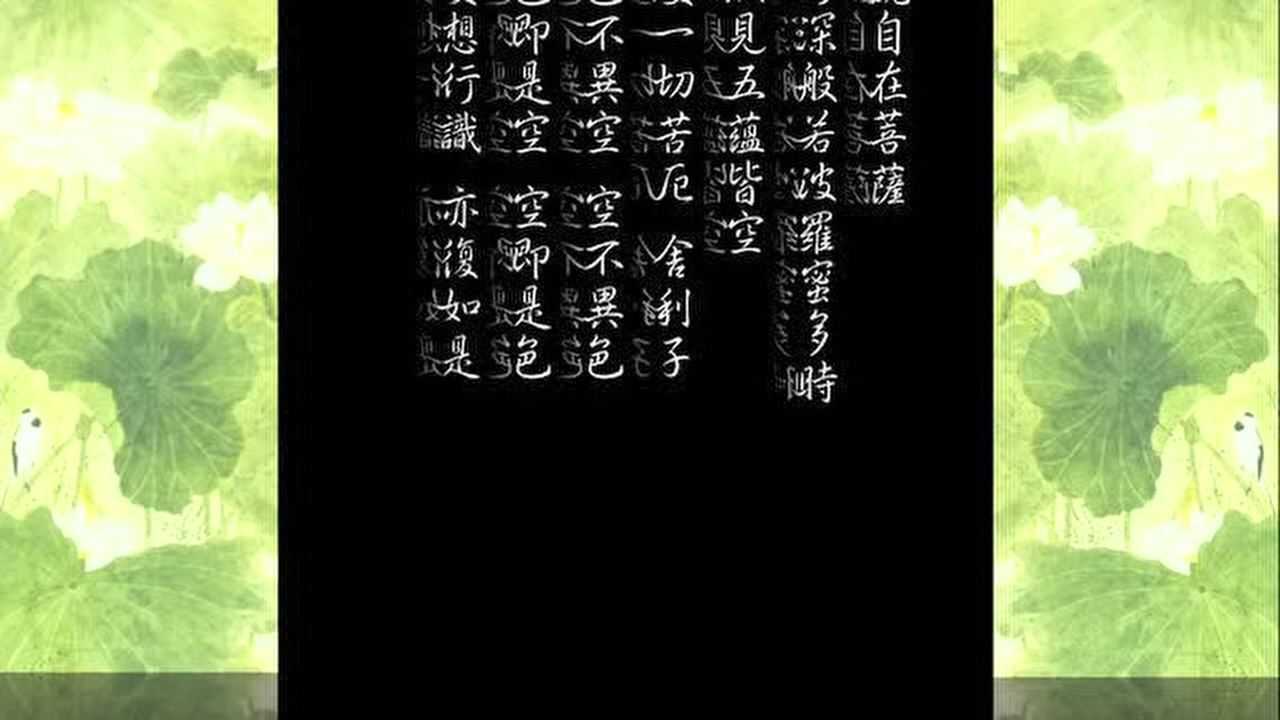 自在菩薩
深般若波羅蜜多時
見五蘊皆空
一切苦厄 舍利子
不異空 空不異色
卽是空 空卽是色
想行識 亦復如是